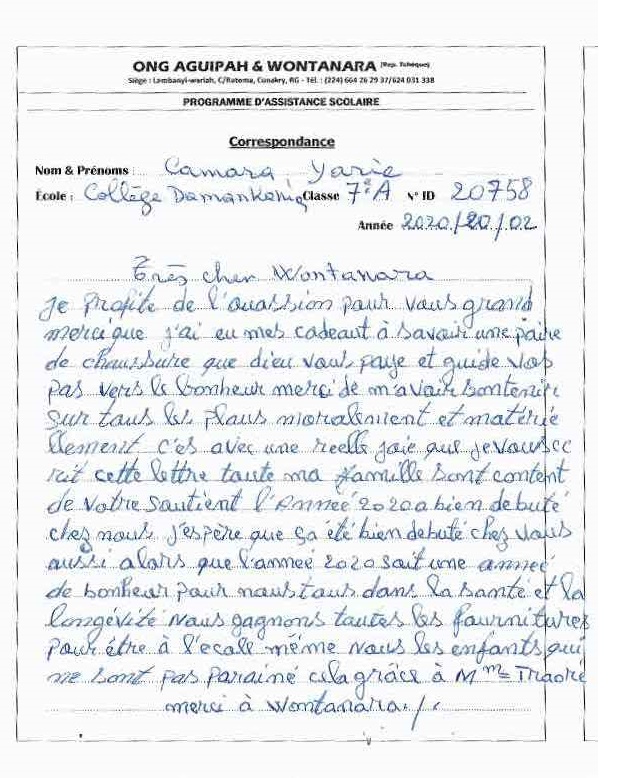 ONG AGUIPAH & WONTANARA (Rep. Tchèque)
Siège : Lambanyi-wariah, C/Ratoma, Conakry, RG - Tél. : (224) 664 26 29 37/624 031 338
PROGRAMME D'ASSISTANCE SCOLAIRE
Correspondance
Nom & Prénoms : Camara Yarie
École : Collège Classe 7e A N° ID 20758
Année 2020/20/02
Très cher Wontanara
Je profite de l'ouassion pour vous grand
merci que j'ai eu mes cadeaut à savoir une paire
de chaussure que dieu vous paye et guide vos
pas vers le bonheur merci de m'avoir soutenir
sur tous les plaus moralement et matérie
llement c'es avec une reelle joie que je vous ec
rit cette lettre toute ma famille sont content
de votre soutient l'Anneé 2020 a bien debuté
chez nous j'espère que ça été bien debuté chez vous
aussi alors que l'anneé 2020 soit une anneé
de bonheur pour nous tous dans la santé et la
longévité Nous gagnons toutes les fournitures
pour être à l'ecole même Nous les enfants qui
ne sont pas parainé cela grâce à Mme Traoré
merci à Wontanara./.